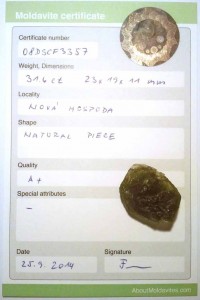 Moldavite certificate
Certificate number:
08DSCF3357
Weight, Dimensions
31.6 ct 23x19x11 mm
Locality
NOVÁ HOSPODA
Shape
NATURAL PIECE
Quality
A+
Special attributes
-
Date
Signature
25.9.2014
AboutMoldavites.com